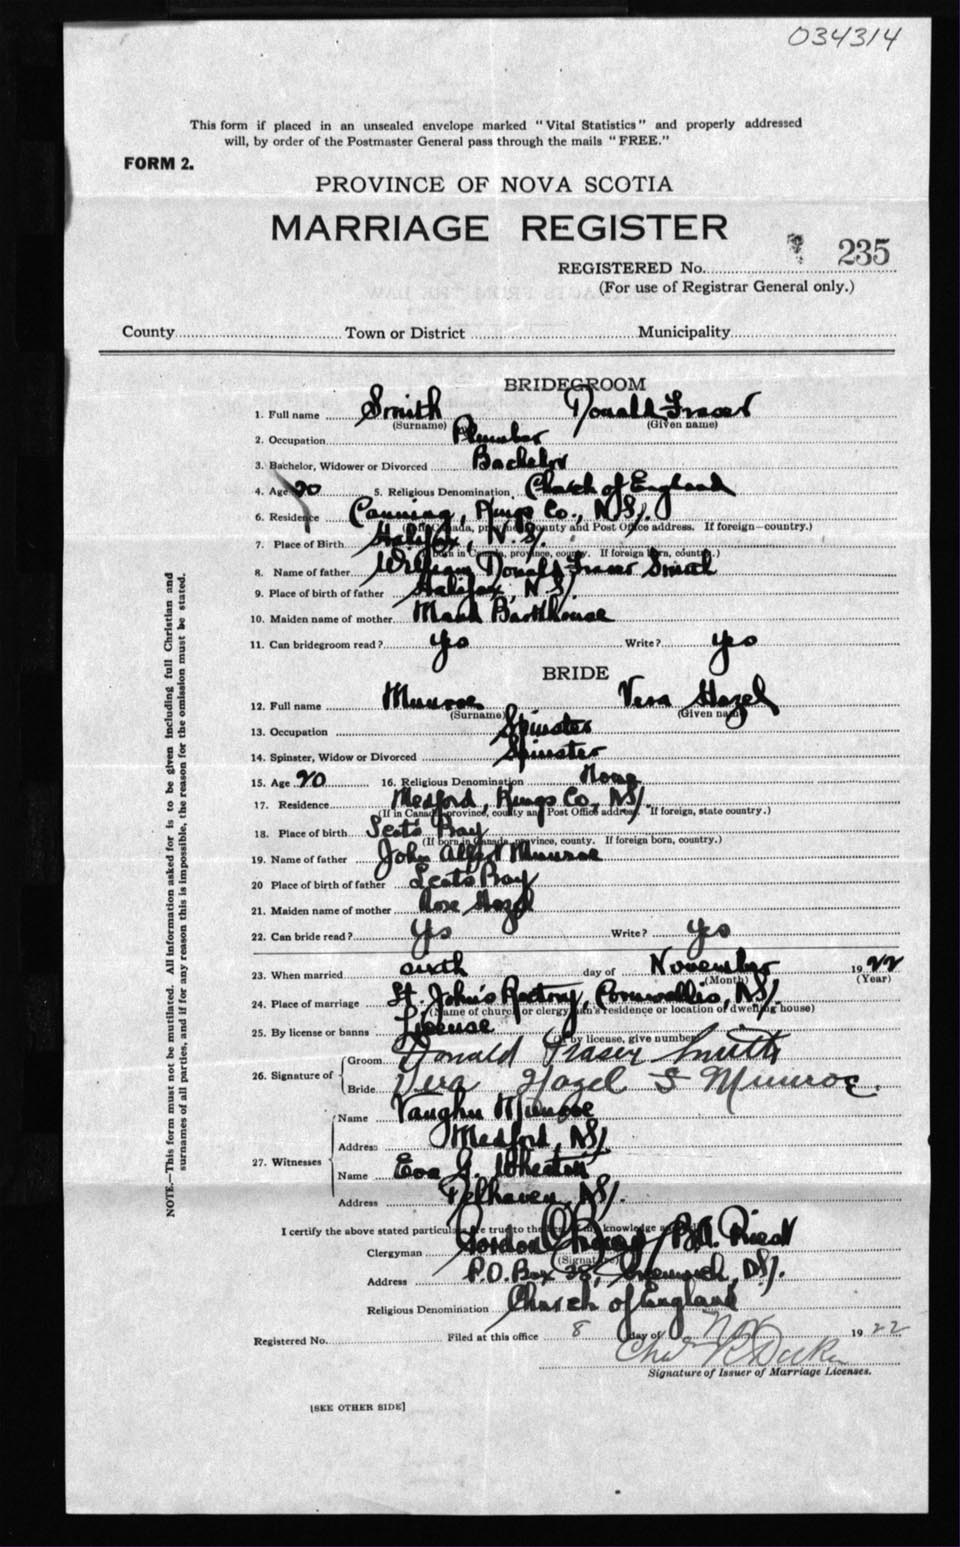 034314
This form if placed in an unsealed envelope marked "Vital Statistics" and properly addressed
will, by order of the Postmaster General pass through the mails "FREE."
FORM 2.
PROVINCE OF NOVA SCOTIA
MARRIAGE REGISTER
REGISTERED No. 235
(For use of Registrar General only.)
County Town or District Municipality
BRIDEGROOM
1. Full name Smith Donald Fraser
(Surname) (Given name)
2. Occupation Plumber
3. Bachelor, Widower or Divorced Bachelor
4. Age 20 5. Religious Denomination Church of England
6. Residence Canning, Kings Co., N.S.
(If in Canada, province, county and Post Office address. If foreign—country.)
7. Place of Birth Halifax, N.S.
(If born in Canada, province, county. If foreign born, country.)
8. Name of father William Donald Fraser Smith
9. Place of birth of father Halifax, N.S.
10. Maiden name of mother Maud Barkhouse
11. Can bridegroom read? yes Write? yes
BRIDE
12. Full name Munroe Vera Hazel
(Surname) (Given name)
13. Occupation Spinster
14. Spinster, Widow or Divorced Spinster
15. Age 20 16. Religious Denomination None
17. Residence Medford, Kings Co., N.S.
(If in Canada, province, county and Post Office address. If foreign, state country.)
18. Place of birth Scots Bay
(If born in Canada, province, county. If foreign born, country.)
19. Name of father John Albert Munroe
20 Place of birth of father Scots Bay
21. Maiden name of mother Rose Hazel
22. Can bride read? Yes Write? Yes
23. When married sixth day of November 1922
(Month) (Year)
24. Place of marriage St. John's Rectory, Cornwallis, N.S.
(Name of church or clergyman's residence or location of dwelling house)
25. By license or banns License
(If by license, give number)
26. Signature of Groom Donald Fraser Smith
Bride Vera Hazel S Munroe.
27. Witnesses Name Vaughn Munroe
Address Medford, N.S.
Name Eva G. Wheaton
Address Delhaven, N.S.
I certify the above stated particulars are true to the best of my knowledge and
Clergyman Gordon B.A. Priest
(Signature)
Address P.O. Box 28, Greenwich, N.S.
Religious Denomination Church of England
Registered No. Filed at this office 8 day of Nov 1922
Signature of Issuer of Marriage Licenses.
[SEE OTHER SIDE]
NOTE.—This form must not be mutilated. All information asked for is to be given including full Christian and
surnames of all parties, and if for any reason this is impossible, the reason for the omission must be stated.